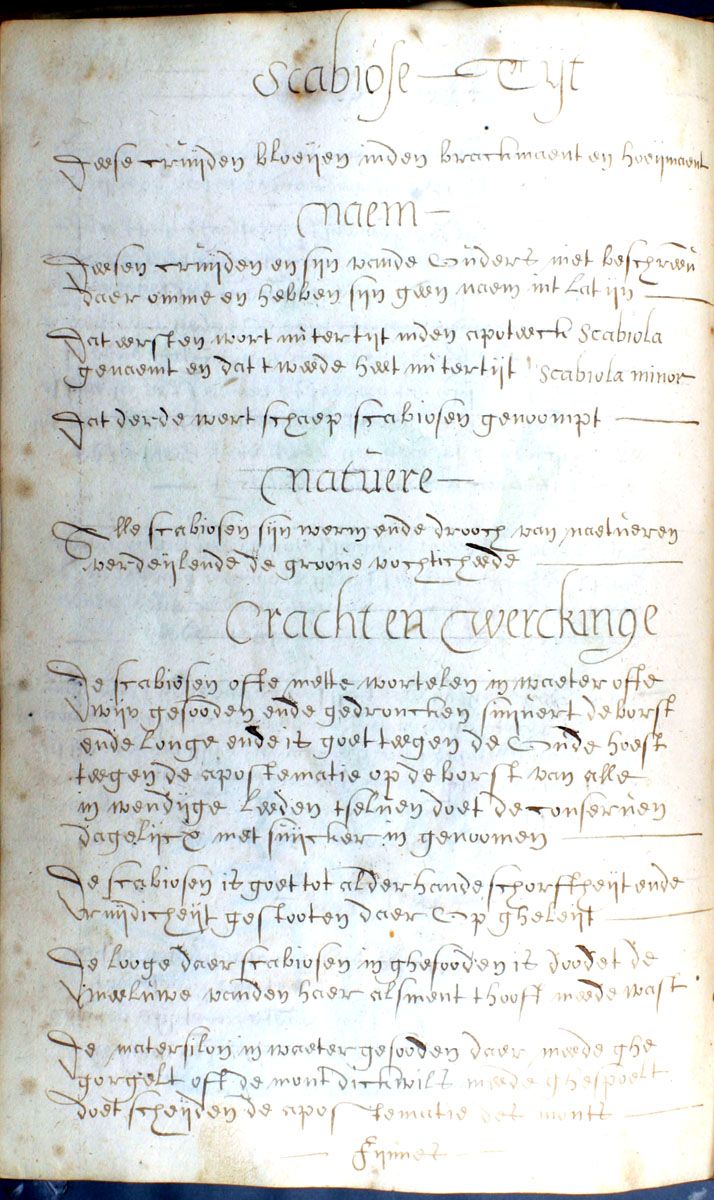 Scabiose Tijt
Deese cruijden bloeijen inden brackmaent en hoeijmaent
Naem
Deesen cruijden en sijn vande Ouders niet beschreeven
daer omme en hebben sijn geen naem int latijn
Dat eersten wort nu tertijt inden apoteeck Scabiosa
genaemt en dat tweede heet nu tertijt Scabiosa minor
Dat derde wert schaep scabiosen genoompt
Natuere
Alle scabiosen sijn werm ende drooch van naetueren
verdeijlende de groove vochticheede
Cracht en Werckinge
De scabiosen ofte mette wortelen in waeter ofte
wijn gesooden ende gedroncken suijvert de borst
ende longe ende is goet teegen de Oude hoest
teegen de apostematie op de borst van alle
in wendijge leeden tselven doet de conserven
dagelijcx met suijcker in genoomen
De scabiosen is goet tot alderhande schorftheijt ende
ruijdicheijt gestooten daer Op gheleijt
De looge daer scabiosen in ghesooden is doodet de
meeluwe vanden haer alsment thooft meede wast
De matersilon in waeter gesooden daer meede ghe
gorgelt oft de mont dickwils meede ghespoelt
doet scheijden de apostematie des monts
Finnes